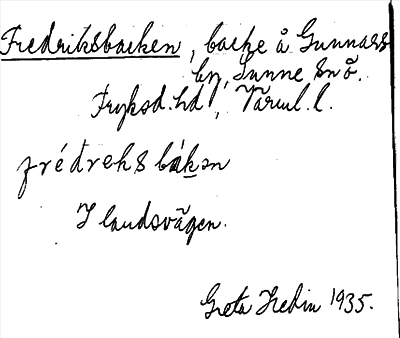 Fredriksbacken, backe å Gunnars
by, Sunne sn ö.
Fryksd. hd, Värml. l.
frédreks bákən
I landsvägen.
Greta Hedin 1935.